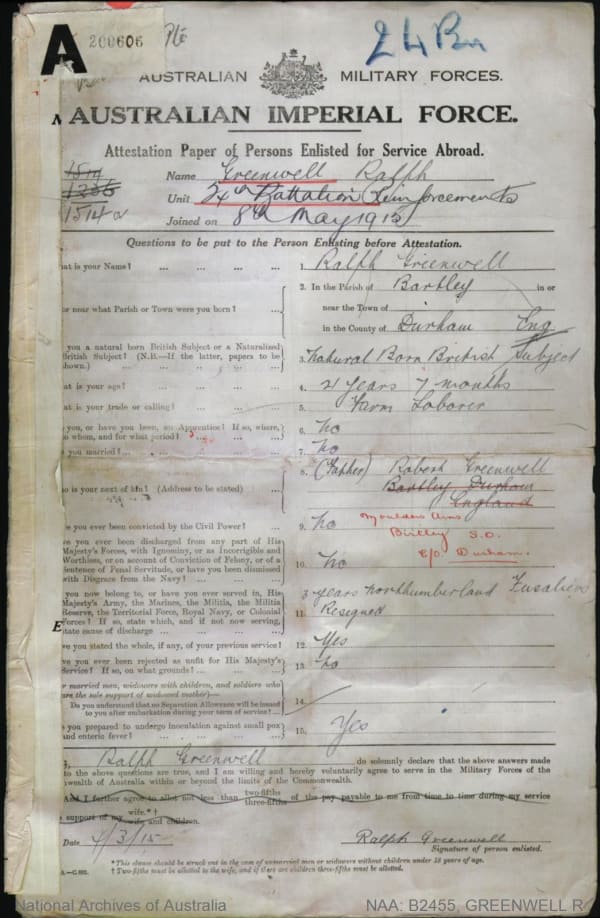 A 200606 Pte 24 Bn
AUSTRALIAN MILITARY FORCES.
AUSTRALIAN IMPERIAL FORCE.
Attestation Paper of Persons Enlisted for Service Abroad.
Name Greenwell Ralph
1286
Unit 24th Battalion Reinforcements
1514 a
Joined on 8th May 1915
Questions to be put to the Person Enlisting before Attestation.
at is your Name? ... ... ... ... 1. Ralph Greenwell
2. In the Parish of Bartley in or
or near what Parish or Town were you born? ... near the Town of
in the County of Durham Eng
you a natural born British Subject or a Naturalized
British Subject? (N.B.—If the latter, papers to be
shown.) ... ... ... 3. Natural Born British Subject
at is your age? ... ... ... 4. 21 years 7 months
at is your trade or calling? ... ... ... 5. Farm Laborer
you, or have you been, an Apprentice? If so, where,
o whom, and for what period? ... 6. No
you married? ... ... ... 7. No
8. (Father) Robert Greenwell
o is your next of kin? (Address to be stated) ... Bartley Durham
England
ve you ever been convicted by the Civil Power? ... 9. No
Moulders Arms
Birtley S.O.
Co. Durham.
ve you ever been discharged from any part of His
Majesty's Forces, with Ignominy, or as Incorrigible and
Worthless, or on account of Conviction of Felony, or of a
sentence of Penal Servitude, or have you been dismissed
with Disgrace from the Navy? ... 10. No
you now belong to, or have you ever served in, His
Majesty's Army, the Marines, the Militia, the Militia
Reserve, the Territorial Force, Royal Navy, or Colonial
Forces? If so, state which, and if not now serving,
state cause of discharge ... 11. 3 years Northumberland Fusaliers
Resegned
ve you stated the whole, if any, of your previous service? 12. Yes
ve you ever been rejected as unfit for His Majesty's
Service? If so, on what grounds? ... 13. No
r married men, widowers with children, and soldiers who
are the sole support of widowed mother)—
Do you understand that no Separation Allowance will be issued
to you after embarkation during your term of service? ... 14.
you prepared to undergo inoculation against small pox
and enteric fever? ... 15. Yes
I, Ralph Greenwell do solemnly declare that the above answers made
to the above questions are true, and I am willing and hereby voluntarily agree to serve in the Military Forces of the
wealth of Australia within or beyond the limits of the Commonwealth.
And I further agree to allot not less than two-fifths three-fifths of the pay payable to me from time to time during my service
support of my wife.* † wife and children.
Date 4/3/15 Ralph Greenwell
Signature of person enlisted.
* This clause should be struck out in the case of unmarried men or widowers without children under 18 years of age.
† Two-fifths must be allotted to the wife, and if there are children three-fifths must be allotted.
National Archives of Australia NAA: B2455, GREENWELL R